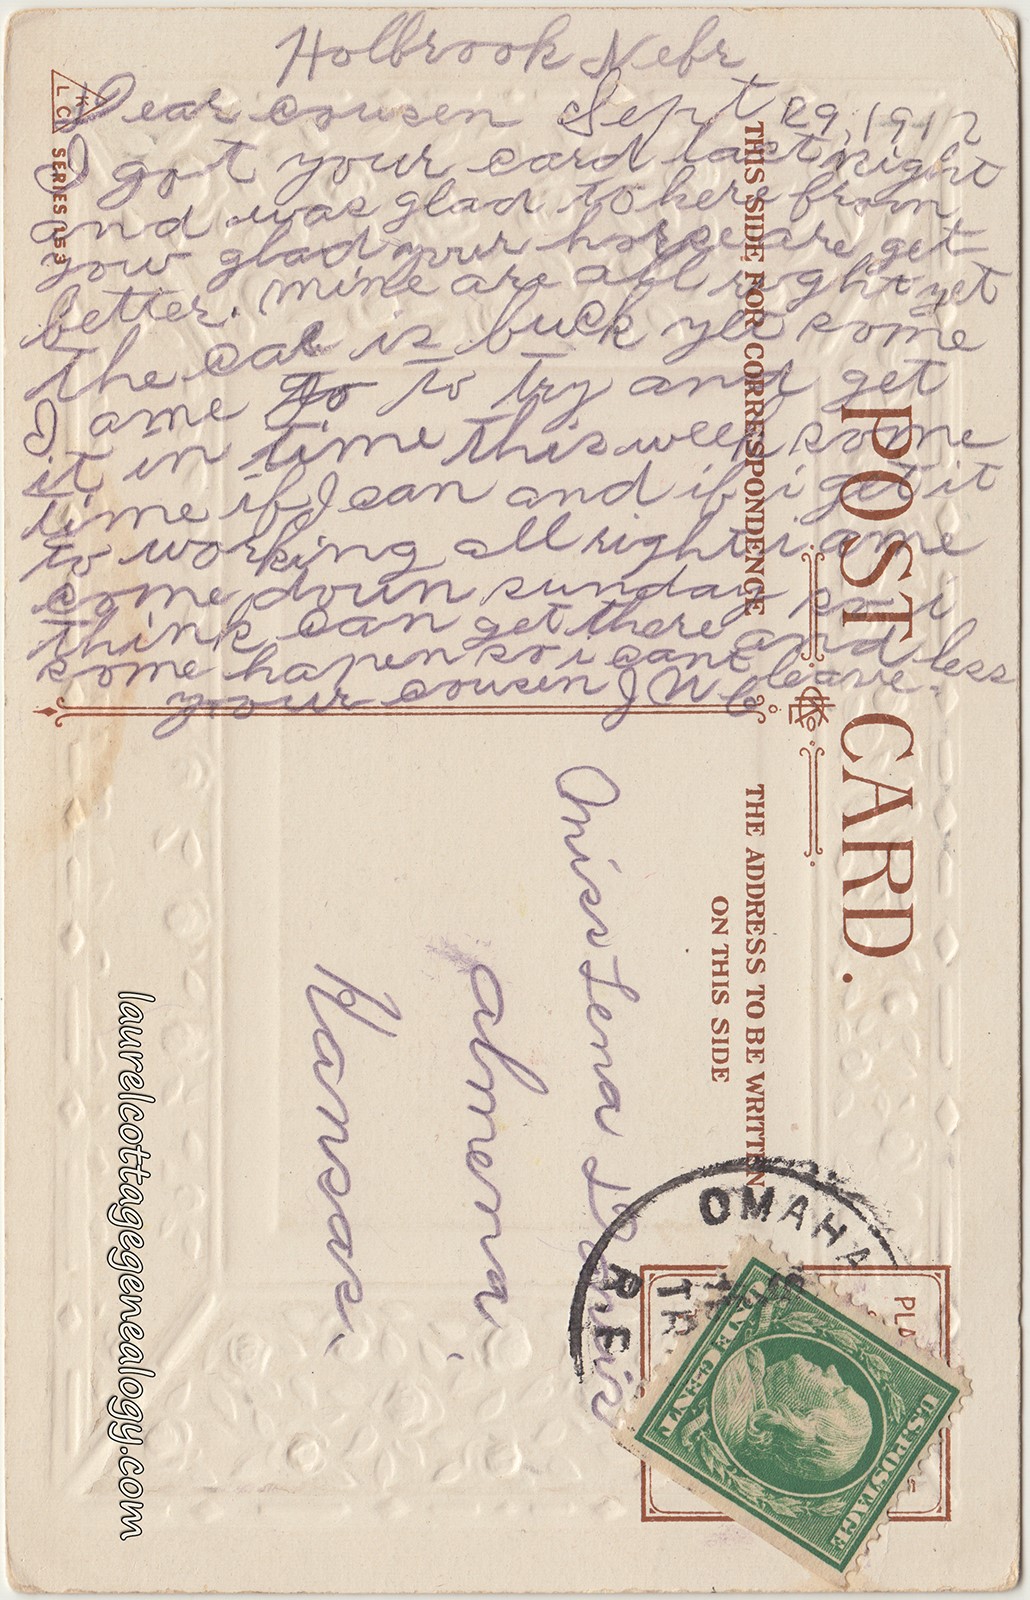 Holbrook Nebr
Sept 29, 1912
Dear cousen
I got your card last night
and was glad to here from
yow glad your horse are get
better. mine are all right yet
the car is buck yet some
I ame go to to try and get
it in time this week some
time if I can and if i get it
to working all right i ame
come doun sunday so i
think can get there and less
some hapen so i cant leave.
your cousen J W C
POST CARD.
THIS SIDE FOR CORRESPONDENCE
THE ADDRESS TO BE WRITTEN
ON THIS SIDE
K
L C
SERIES 153
Miss Lena
Almena
Kansas.
OMAHA
TR
R.E
PLA
U.S. POSTAGE
ONE CENT
laurelcottagegenealogy.com